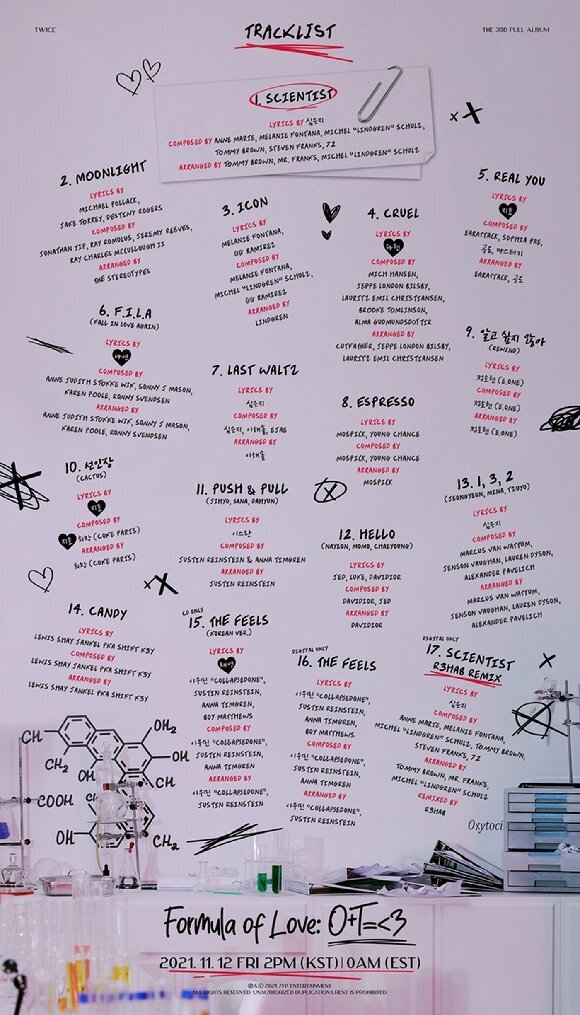 TWICE
TRACKLIST
THE 3RD FULL ALBUM
1. SCIENTIST
LYRICS BY 심은지
COMPOSED BY ANNE MARIE, MELANIE FONTANA, MICHEL "LINDGREN" SCHULZ,
TOMMY BROWN, STEVEN FRANKS, 72
ARRANGED BY TOMMY BROWN, MR. FRANKS, MICHEL "LINDGREN" SCHULZ
2. MOONLIGHT
LYRICS BY
MICHAEL POLLACK,
JAKE TORREY, DESTINY ROGERS
COMPOSED BY
JONATHAN YIP, RAY ROMULUS, JEREMY REEVES,
RAY CHARLES MCCULLOUGH II
ARRANGED BY
THE STEREOTYPES
3. ICON
LYRICS BY
MELANIE FONTANA,
GG RAMIREZ
COMPOSED BY
MELANIE FONTANA,
MICHEL "LINDGREN" SCHULZ,
GG RAMIREZ
ARRANGED BY
LINDGREN
4. CRUEL
LYRICS BY
다현
COMPOSED BY
MICH HANSEN,
JEPPE LONDON BILSBY,
LAURITZ EMIL CHRISTIANSEN,
BROOKE TOMLINSON,
ALMA GUDMUNDSDOTTIR
ARRANGED BY
CUTFATHER, JEPPE LONDON BILSBY,
LAURITZ EMIL CHRISTIANSEN
5. REAL YOU
LYRICS BY
지효
COMPOSED BY
EARATTACK, SOPHIA PAE,
공도, 마스터키
ARRANGED BY
EARATTACK, 공도
6. F.I.L.A
(FALL IN LOVE AGAIN)
LYRICS BY
다현
COMPOSED BY
ANNE JUDITH STOKKE WIK, SONNY J MASON,
KAREN POOLE, RONNY SVENDSEN
ARRANGED BY
ANNE JUDITH STOKKE WIK, SONNY J MASON,
KAREN POOLE, RONNY SVENDSEN
7. LAST WALTZ
LYRICS BY
심은지
COMPOSED BY
심은지, 이해솔, EJAE
ARRANGED BY
이해솔
8. ESPRESSO
LYRICS BY
MOSPICK, YOUNG CHANCE
COMPOSED BY
MOSPICK, YOUNG CHANCE
ARRANGED BY
MOSPICK
9. 알고 싶지 않아
(REWIND)
LYRICS BY
최호현 (E.ONE)
COMPOSED BY
최호현 (E.ONE)
ARRANGED BY
최호현 (E.ONE)
10. 선인장
(CACTUS)
LYRICS BY
지효
COMPOSED BY
지효 최하람 (COKE PARIS)
ARRANGED BY
최하람 (COKE PARIS)
11. PUSH & PULL
(JIHYO, SANA, DAHYUN)
LYRICS BY
이스란
COMPOSED BY
JUSTIN REINSTEIN & ANNA TIMGREN
ARRANGED BY
JUSTIN REINSTEIN
12. HELLO
(NAYEON, MOMO, CHAEYOUNG)
LYRICS BY
JED, LUKE, DAVIDIOR
COMPOSED BY
DAVIDIOR, JED
ARRANGED BY
DAVIDIOR
13. 1, 3, 2
(JEONGYEON, MINA, TZUYU)
LYRICS BY
심은지
COMPOSED BY
MARCUS VAN WATTUM,
JENSON VAUGHAN, LAUREN DYSON,
ALEXANDER PAVELICH
ARRANGED BY
MARCUS VAN WATTUM,
JENSON VAUGHAN, LAUREN DYSON,
ALEXANDER PAVELICH
14. CANDY
LYRICS BY
LEWIS SHAY JANKEL PKA SHIFT K3Y
COMPOSED BY
LEWIS SHAY JANKEL PKA SHIFT K3Y
ARRANGED BY
LEWIS SHAY JANKEL PKA SHIFT K3Y
CD ONLY
15. THE FEELS
(KOREAN VER.)
LYRICS BY
이우민 "COLLAPSEDONE",
JUSTIN REINSTEIN,
ANNA TIMGREN,
BOY MATTHEWS
COMPOSED BY
이우민 "COLLAPSEDONE",
JUSTIN REINSTEIN,
ANNA TIMGREN
ARRANGED BY
이우민 "COLLAPSEDONE",
JUSTIN REINSTEIN
DIGITAL ONLY
16. THE FEELS
LYRICS BY
이우민 "COLLAPSEDONE",
JUSTIN REINSTEIN,
ANNA TIMGREN,
BOY MATTHEWS
COMPOSED BY
이우민 "COLLAPSEDONE",
JUSTIN REINSTEIN,
ANNA TIMGREN
ARRANGED BY
이우민 "COLLAPSEDONE",
JUSTIN REINSTEIN
DIGITAL ONLY
17. SCIENTIST
R3HAB REMIX
LYRICS BY
심은지
COMPOSED BY
ANNE MARIE, MELANIE FONTANA,
MICHEL "LINDGREN" SCHULZ, TOMMY BROWN,
STEVEN FRANKS, 72
ARRANGED BY
TOMMY BROWN, MR. FRANKS,
MICHEL "LINDGREN" SCHULZ
REMIXED BY
R3HAB
CH
OH₂
CH₂
OH
OH
COOH
OH
CH₂
Oxytoci
Formula of Love: O+T=<3
2021. 11. 12 FRI 2PM (KST) | 0AM (EST)
℗& © 2021 JYP ENTERTAINMENT
ALL RIGHTS RESERVED. UNAUTHORIZED DUPLICATION & RENT IS PROHIBITED.